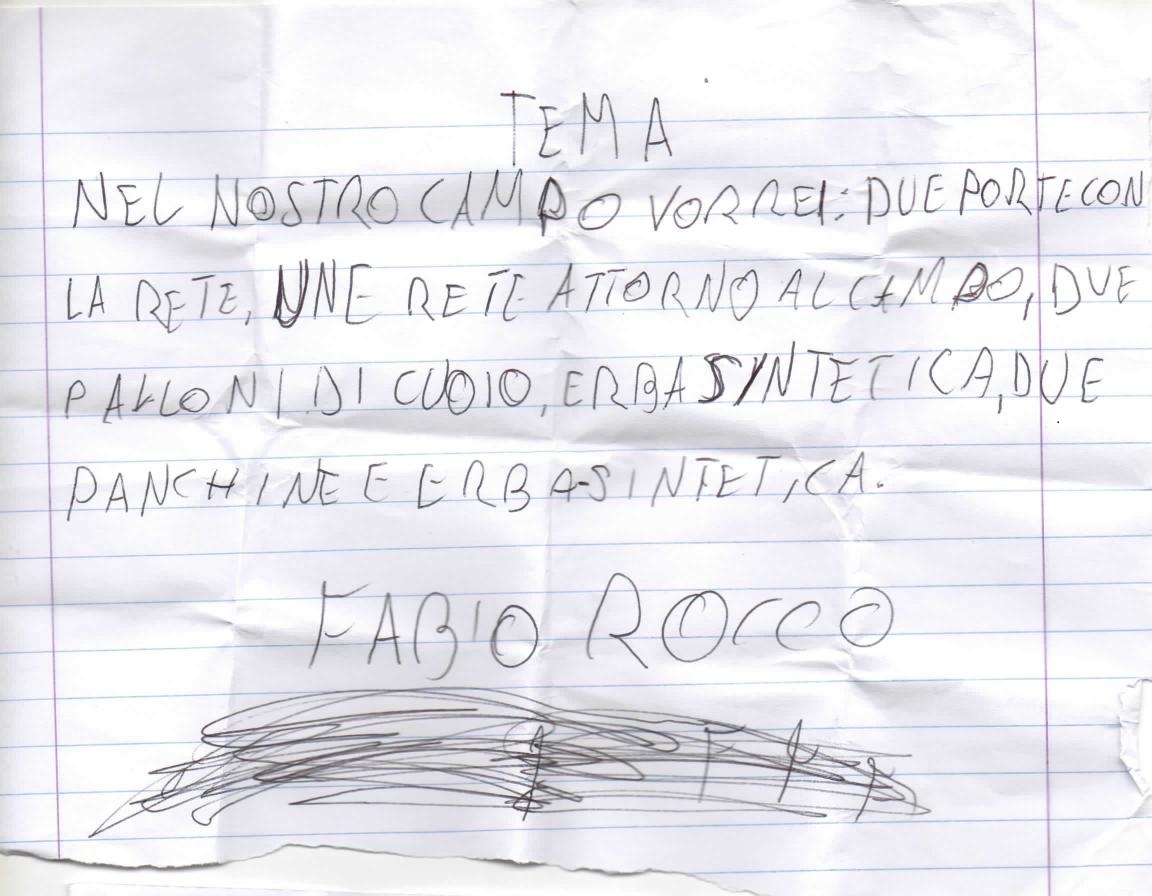 TEMA
NEL NOSTRO CAMPO VORREI: DUE PORTE CON
LA RETE, UNE RETE ATTORNO AL CAMPO, DUE
PALLONI DI CUOIO, ERBA SYNTETICA, DUE
PANCHINE E ERBA SINTETICA.
FABIO ROCCO